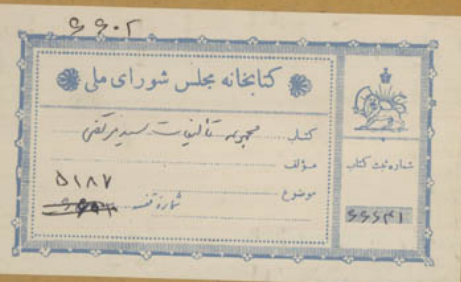 ۶۶۰۲
کتابخانه مجلس شورای ملی
کتاب مجموعه تألیفات سید مرتضی
مؤلف
موضوع
۵۱۸۷
شماره قفسه
شماره ثبت کتاب
۶۶۶۴۱